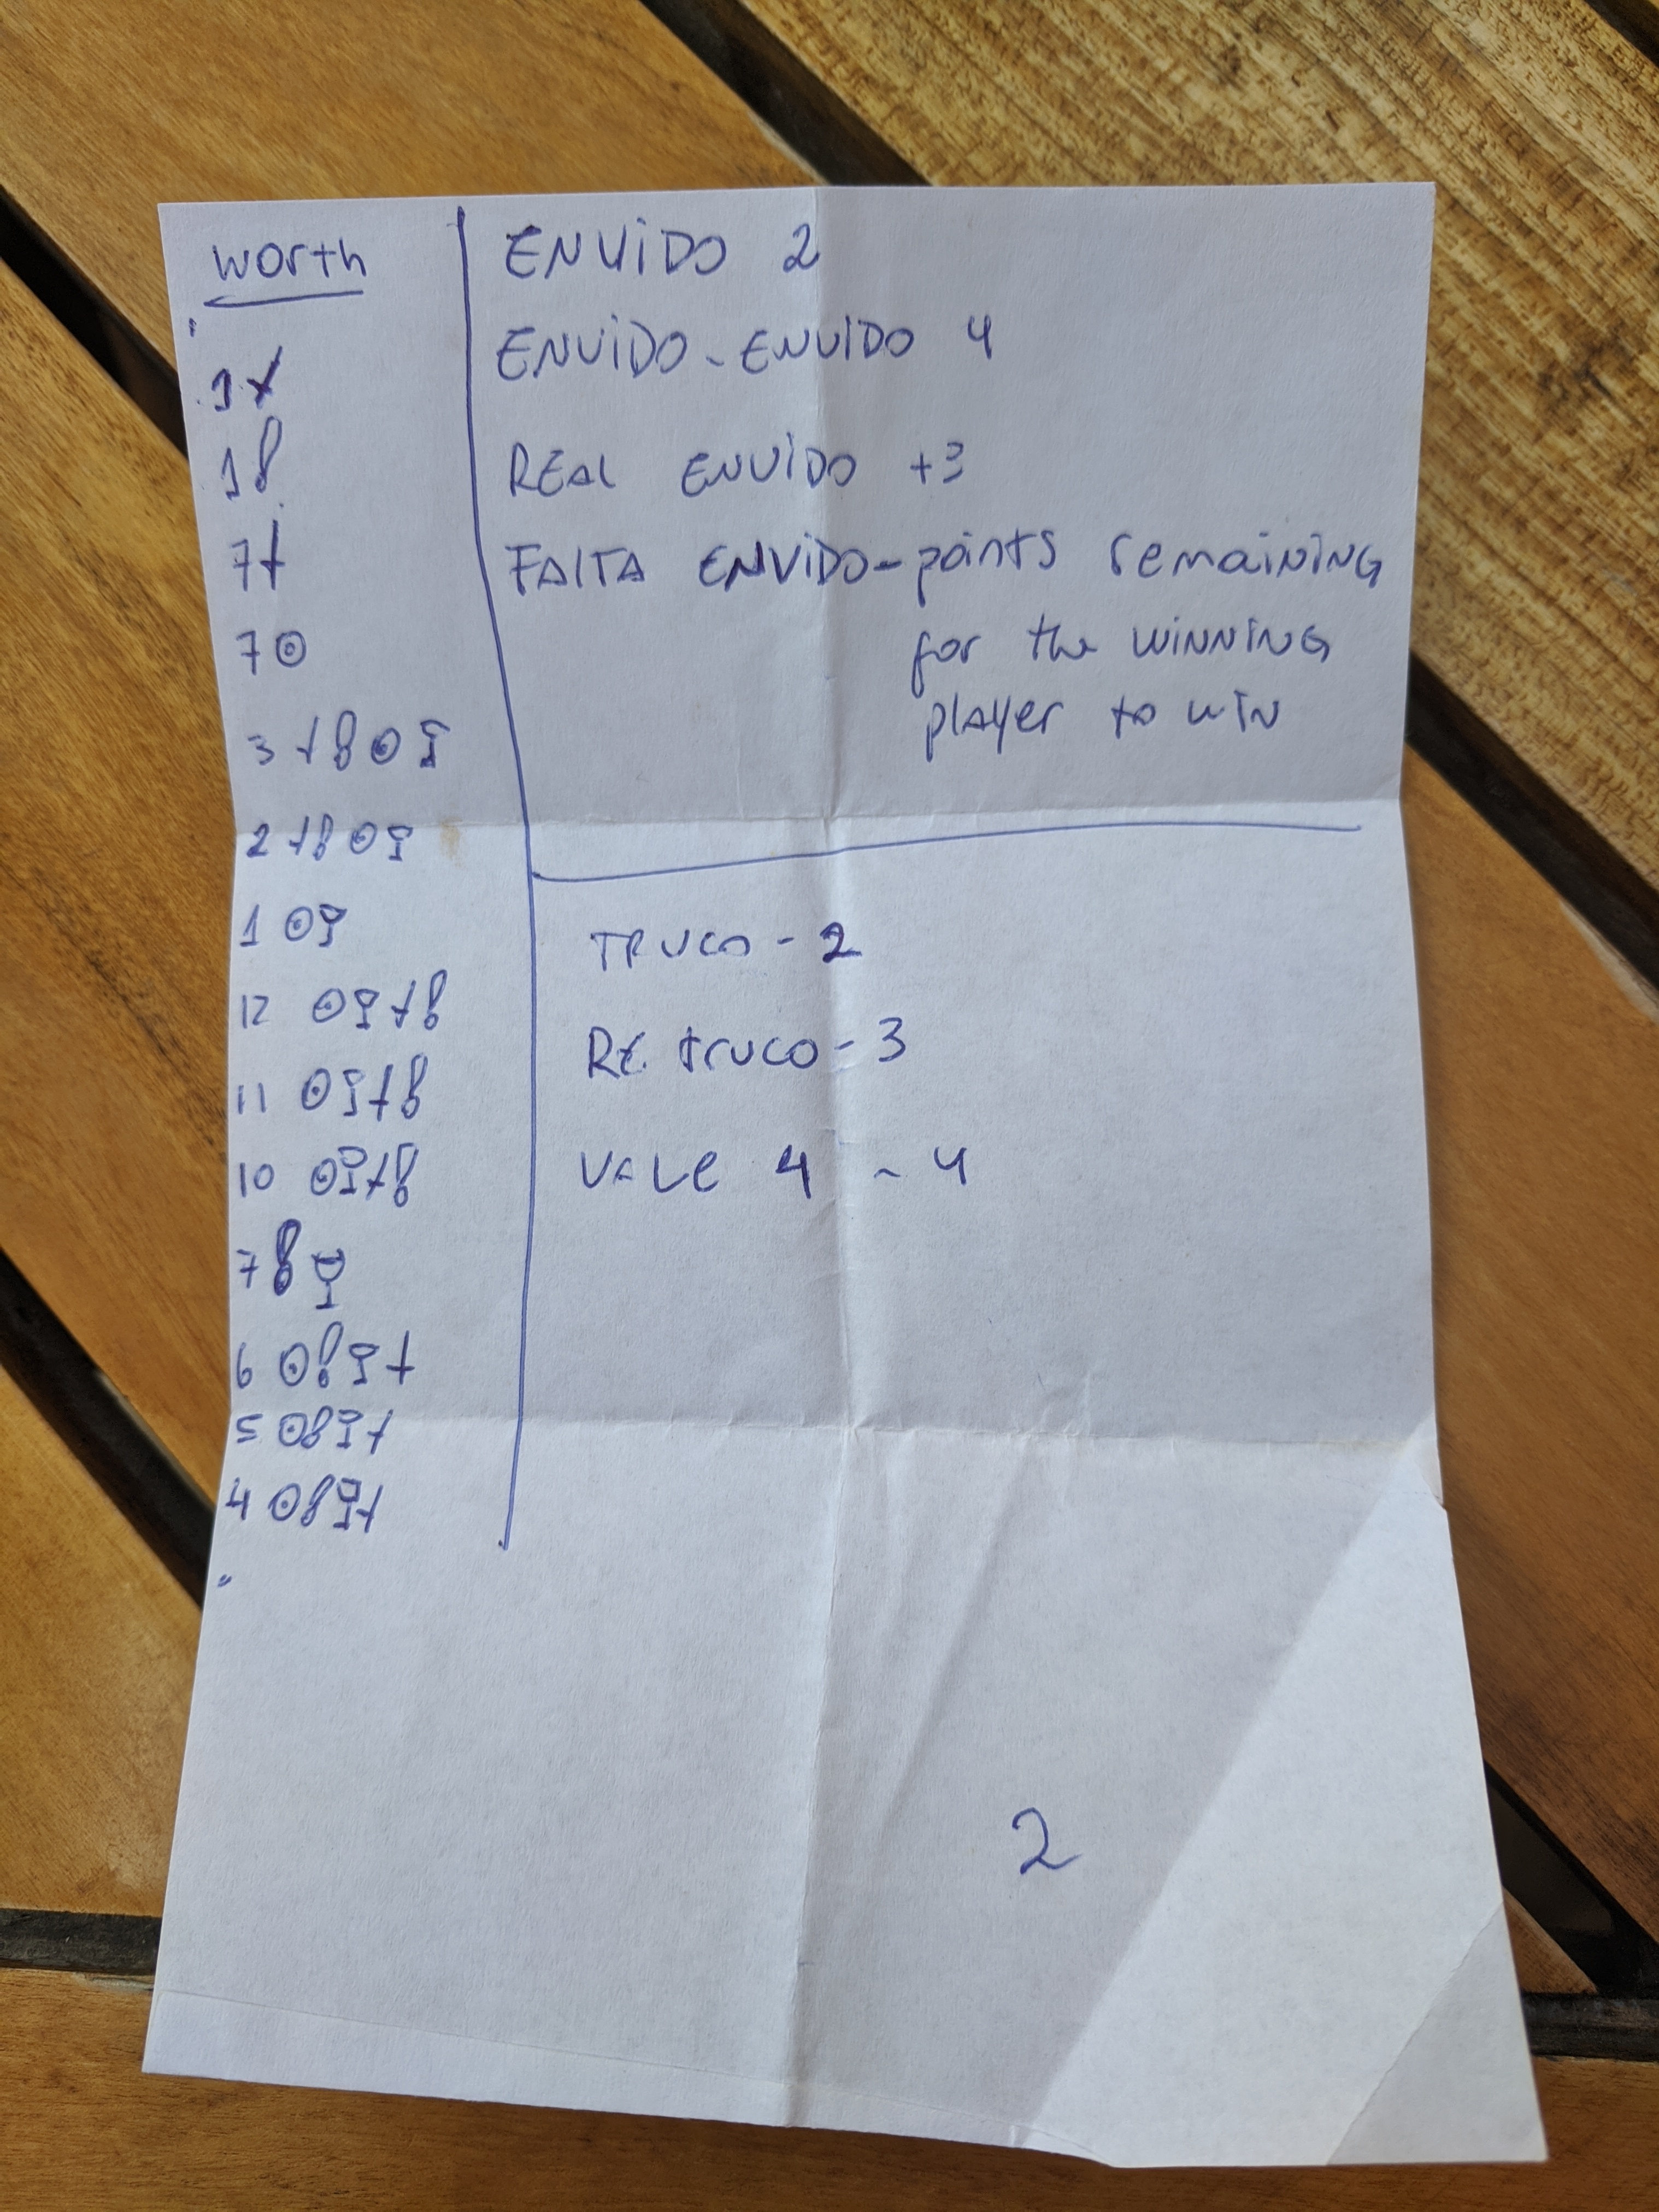 worth
1
1
7
7
3
2
1
12
11
10
7
6
5
4
ENVIDO 2
ENVIDO - ENVIDO 4
REAL ENVIDO +3
FALTA ENVIDO - points remaining
for the winning
player to win
TRUCO - 2
RE TRUCO - 3
VALE 4 - 4
2